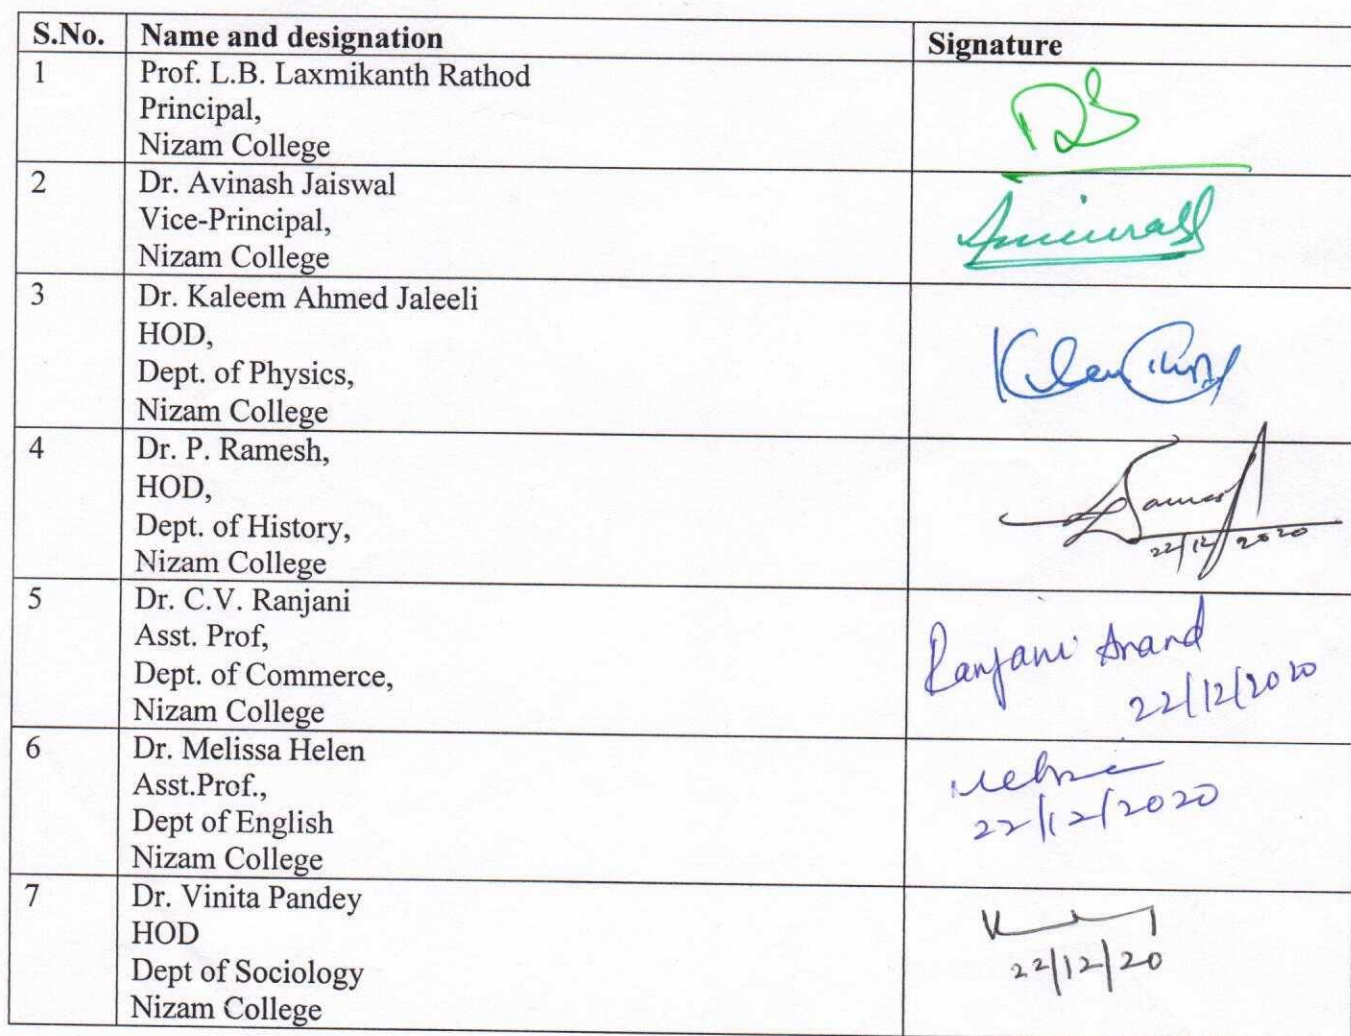 S.No. Name and designation Signature
1 Prof. L.B. Laxmikanth Rathod
Principal,
Nizam College
2 Dr. Avinash Jaiswal
Vice-Principal,
Nizam College
3 Dr. Kaleem Ahmed Jaleeli
HOD,
Dept. of Physics,
Nizam College
4 Dr. P. Ramesh,
HOD,
Dept. of History,
Nizam College
22/12/2020
5 Dr. C.V. Ranjani
Asst. Prof,
Dept. of Commerce,
Nizam College
Ranjani Anand
22/12/2020
6 Dr. Melissa Helen
Asst.Prof.,
Dept of English
Nizam College
22/12/2020
7 Dr. Vinita Pandey
HOD
Dept of Sociology
Nizam College
22/12/20